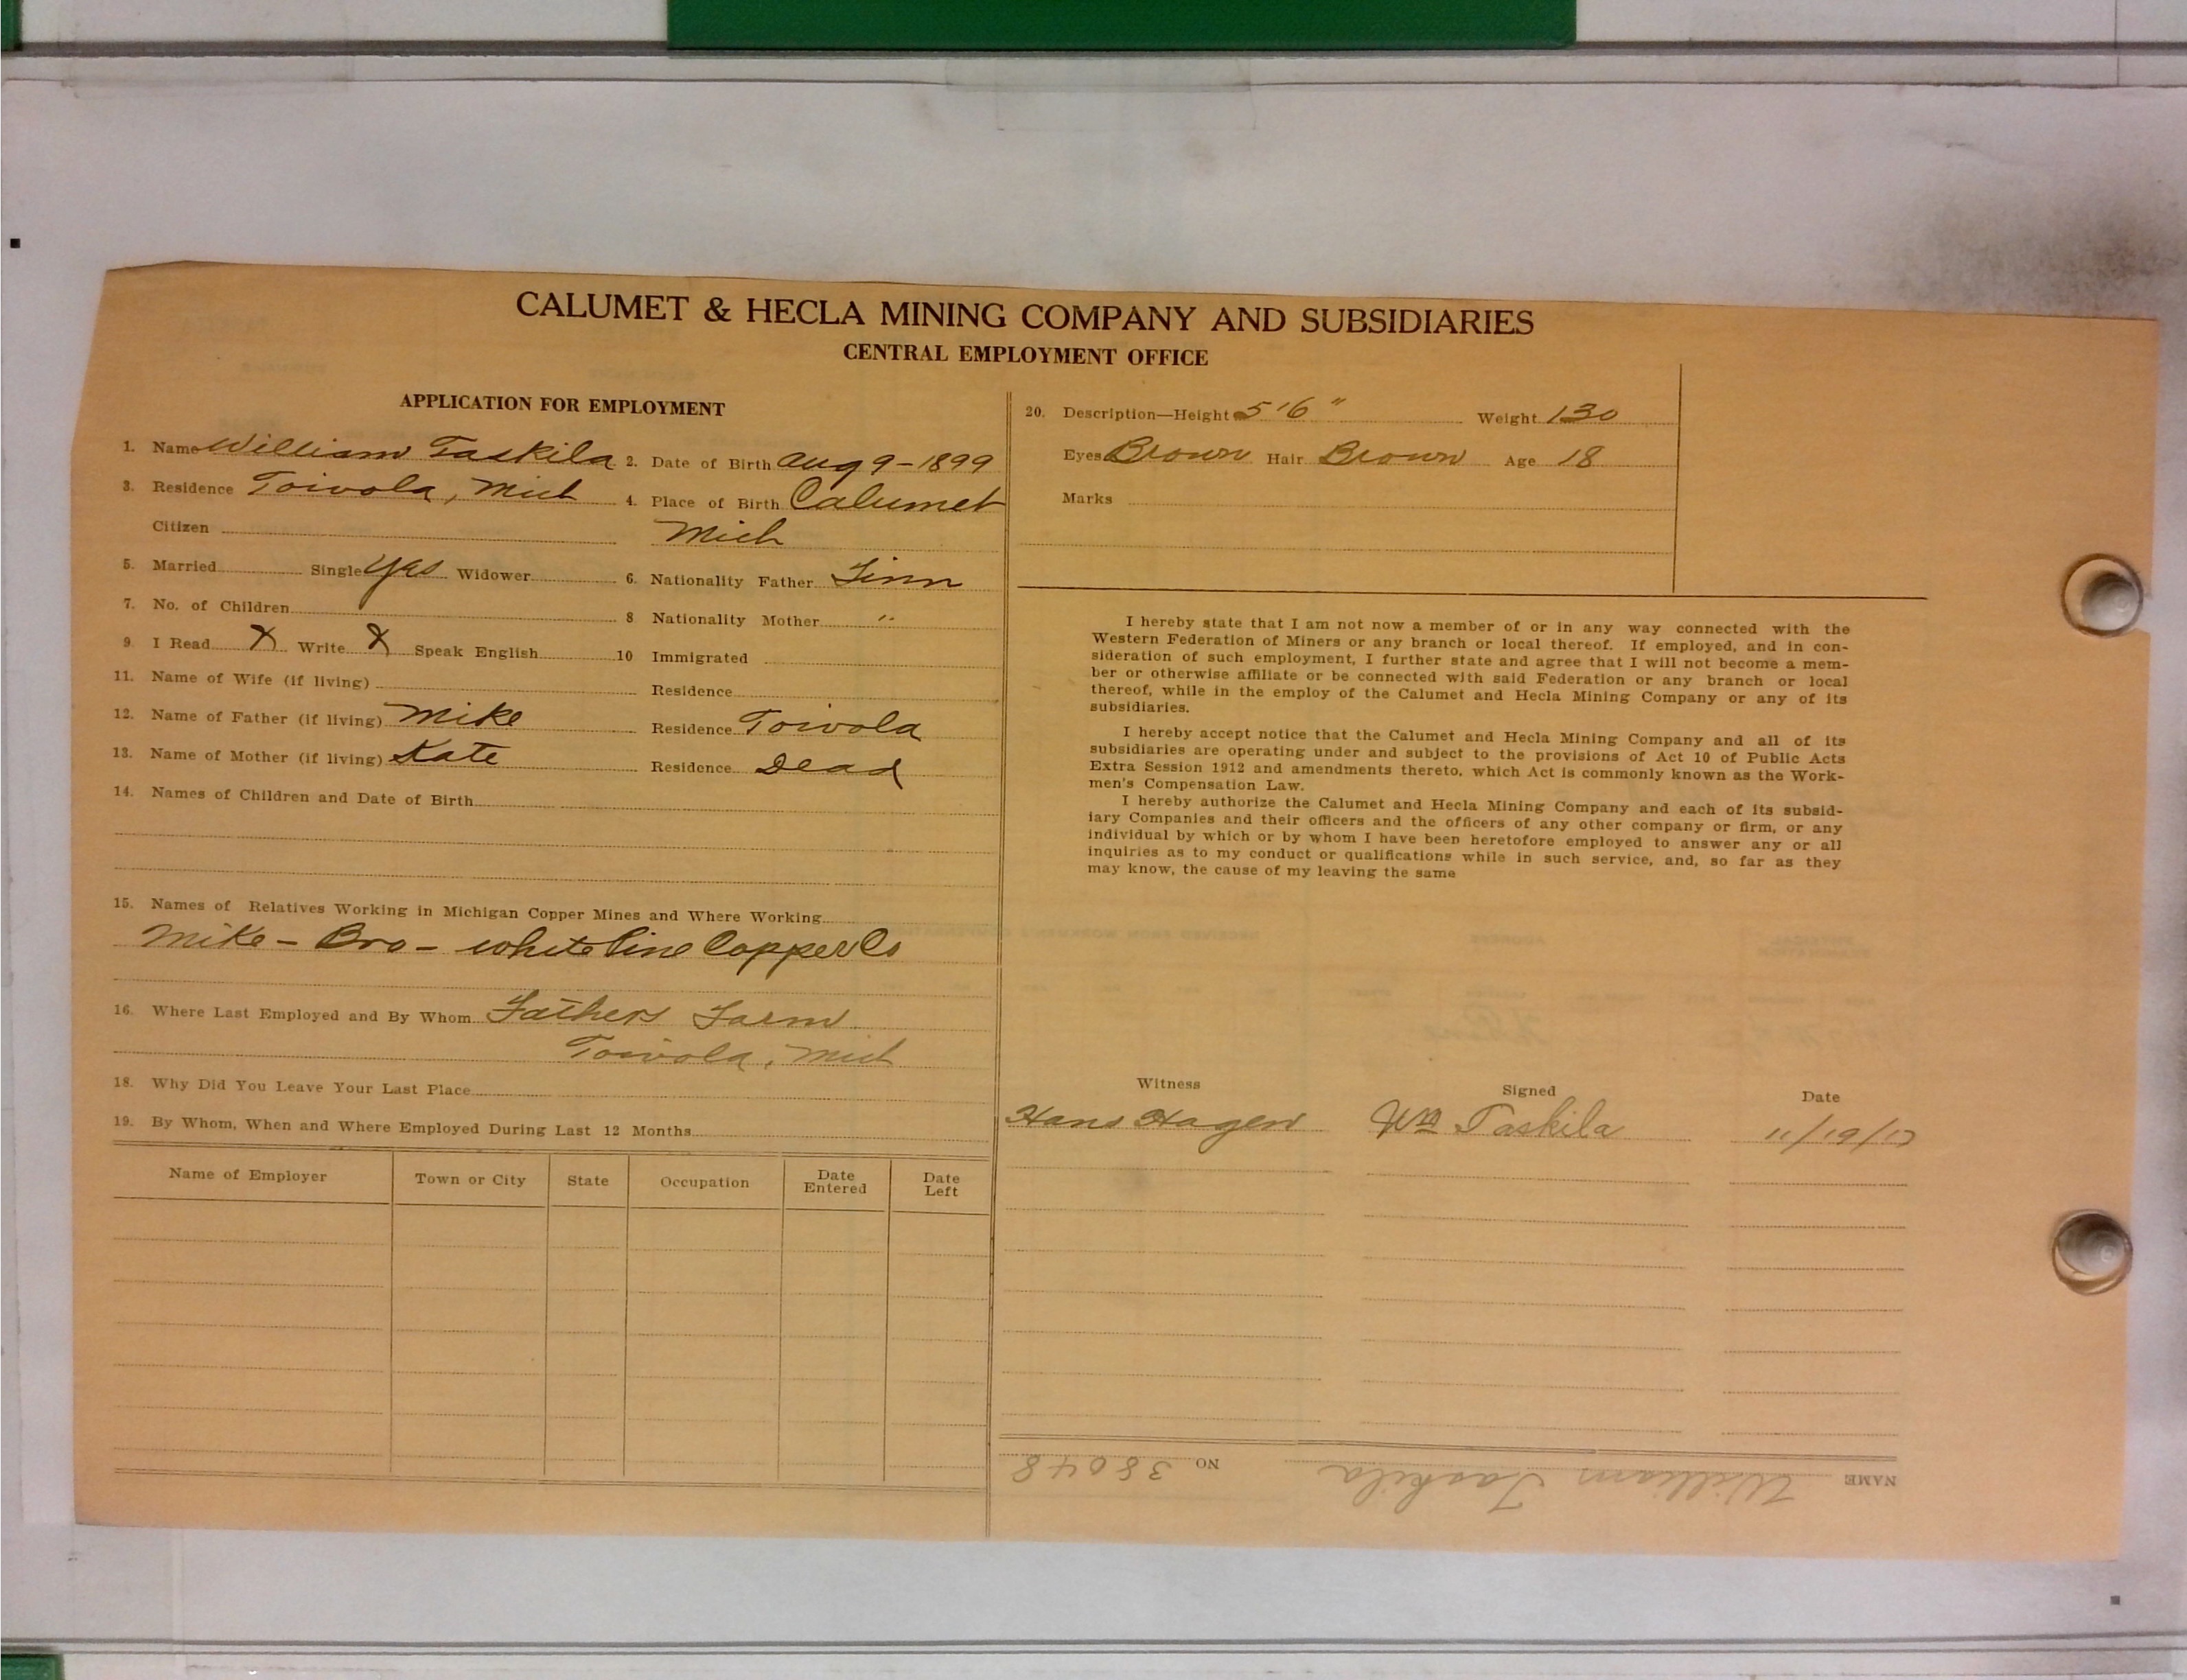 CALUMET & HECLA MINING COMPANY AND SUBSIDIARIES
CENTRAL EMPLOYMENT OFFICE
APPLICATION FOR EMPLOYMENT
1. Name William Taskila 2. Date of Birth Aug 9-1899
3. Residence Toivola, Mich 4. Place of Birth Calumet
Citizen Mich
5. Married Single Yes Widower 6. Nationality Father Finn
7. No. of Children 8 Nationality Mother "
9. I Read X Write X Speak English 10 Immigrated
11. Name of Wife (if living) Residence
12. Name of Father (if living) Mike Residence Toivola
13. Name of Mother (if living) Kate Residence Dead
14. Names of Children and Date of Birth
15. Names of Relatives Working in Michigan Copper Mines and Where Working
Mike - Bro - White Pine Copper Co
16. Where Last Employed and By Whom Fathers Farm
Toivola, Mich
18. Why Did You Leave Your Last Place
19. By Whom, When and Where Employed During Last 12 Months
Name of Employer Town or City State Occupation Date Entered Date Left
20. Description—Height 5'6" Weight 130
Eyes Brown Hair Brown Age 18
Marks
I hereby state that I am not now a member of or in any way connected with the
Western Federation of Miners or any branch or local thereof. If employed, and in con-
sideration of such employment, I further state and agree that I will not become a mem-
ber or otherwise affiliate or be connected with said Federation or any branch or local
thereof, while in the employ of the Calumet and Hecla Mining Company or any of its
subsidiaries.
I hereby accept notice that the Calumet and Hecla Mining Company and all of its
subsidiaries are operating under and subject to the provisions of Act 10 of Public Acts
Extra Session 1912 and amendments thereto, which Act is commonly known as the Work-
men's Compensation Law.
I hereby authorize the Calumet and Hecla Mining Company and each of its subsid-
iary Companies and their officers and the officers of any other company or firm, or any
individual by which or by whom I have been heretofore employed to answer any or all
inquiries as to my conduct or qualifications while in such service, and, so far as they
may know, the cause of my leaving the same
Witness Signed Date
Hans Hagen Wm Taskila 11/19/17
NAME William Taskila NO 38048